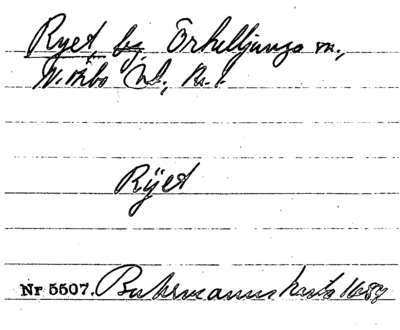 Ryet, by, Örkelljunga sn.,
N. Åsbo hd., Kr. l.
Rÿet
Nr 5507. Buhrmanns karta 1684